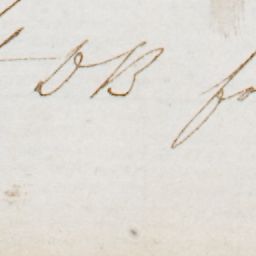 DB fo